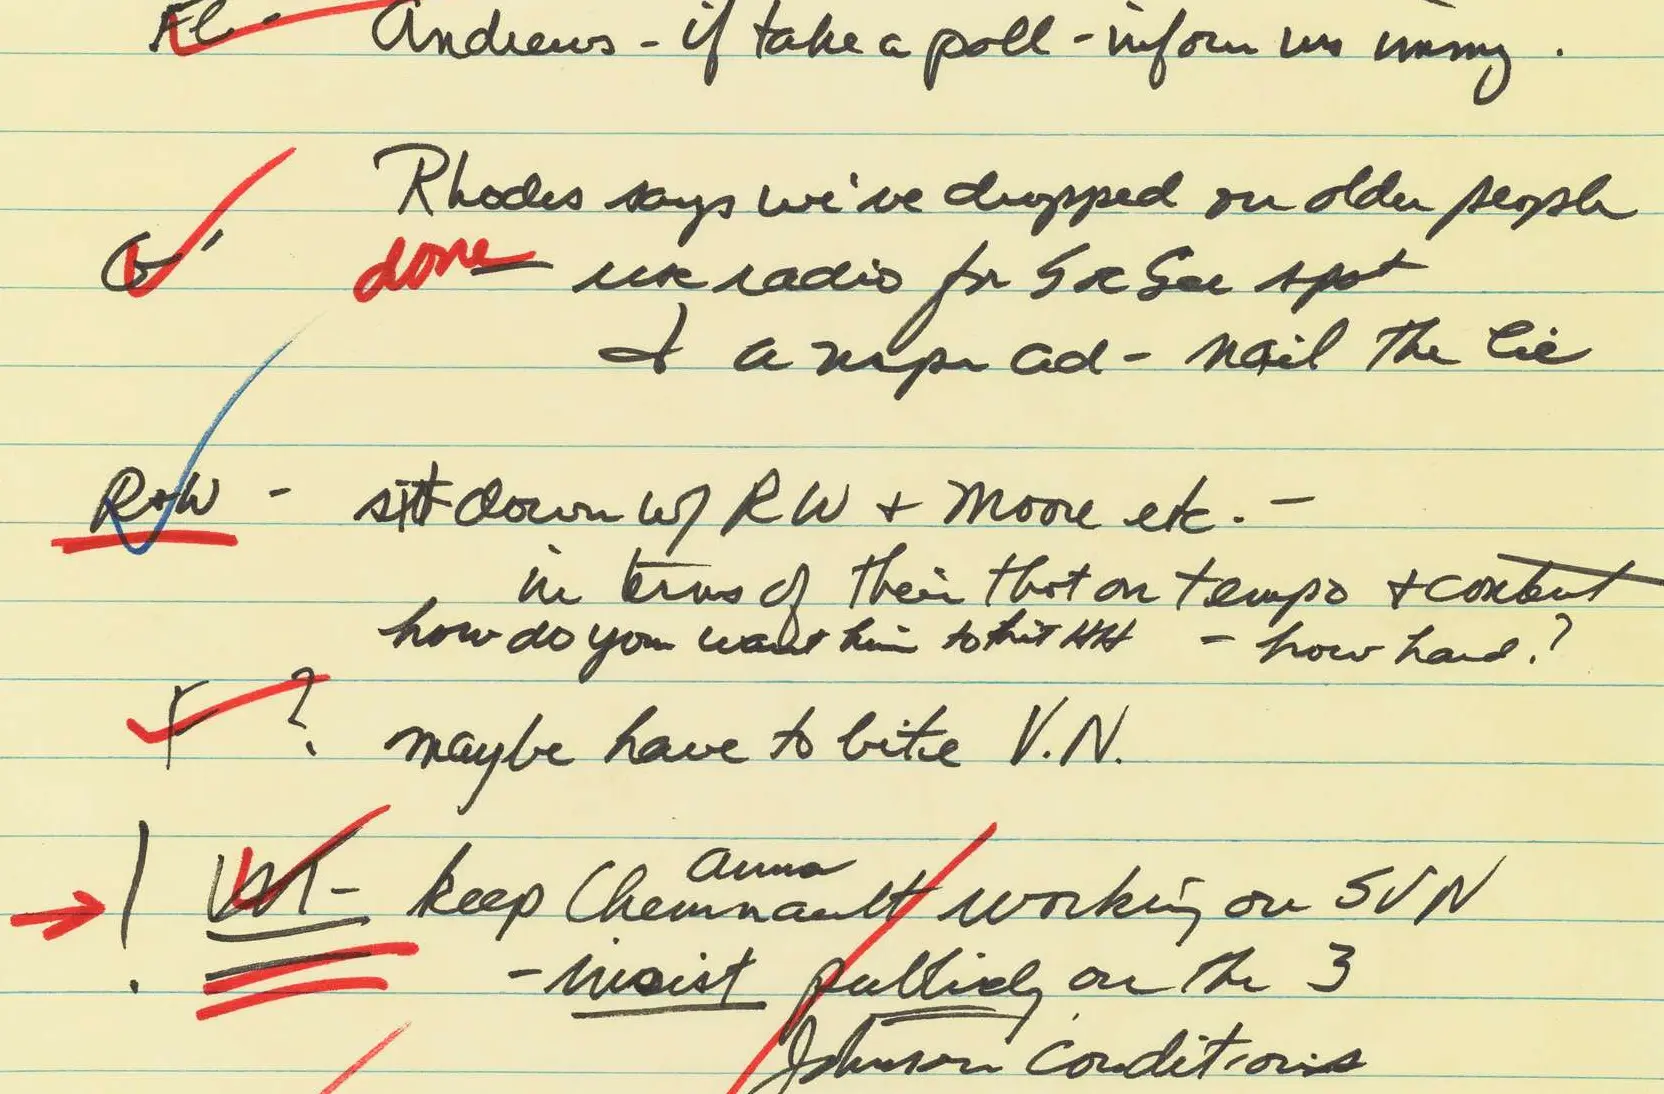 Andrews - if take a poll - inform us immy.
Rhodes says we've dropped on older people
G' done - use radio for Soc Sec spot
+ a nspr ad - nail the lie
R+W - sit down w/ RW + Moore etc. -
in terms of their thot on tempo + content
how do you want him to hit HH - how hard?
? maybe have to bite V.N.
Anna
! keep Chennault working on SVN
- insist publicly on the 3
Johnson conditions